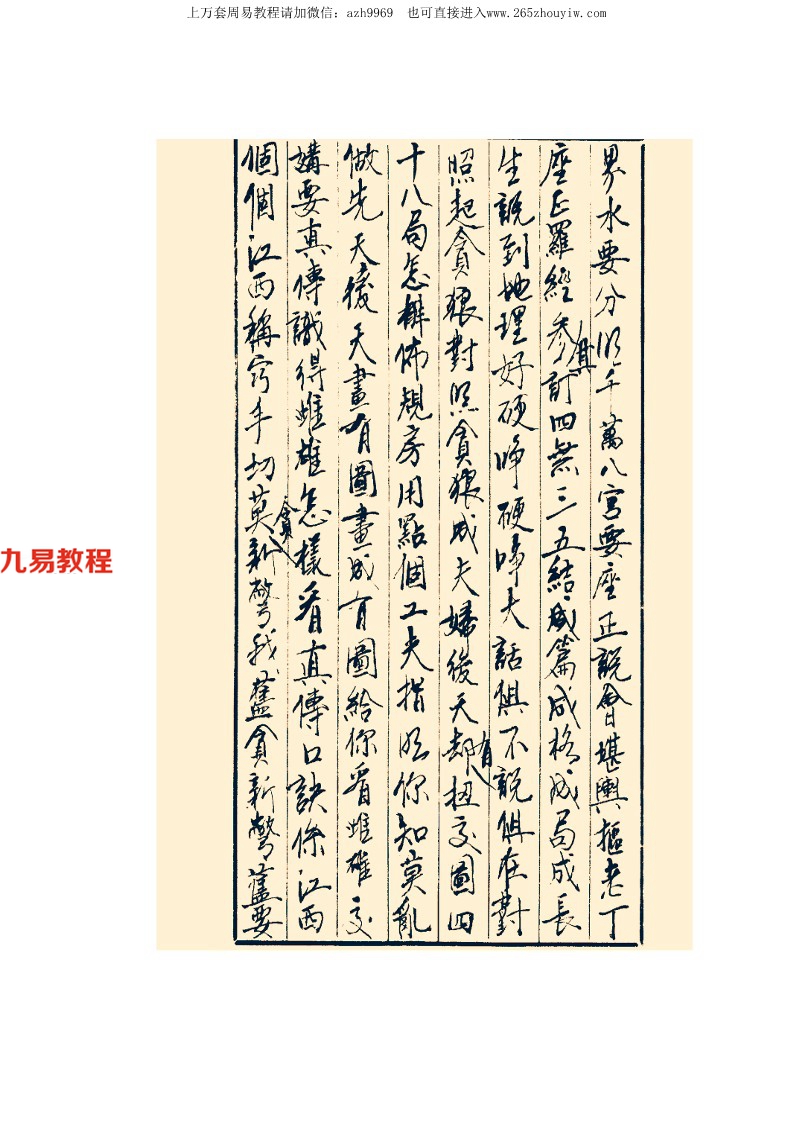 上万套周易教程请加微信：azh9969　也可直接进入www.265zhouyiw.com
界水要分明千萬八宮要座正說會堪輿摳老丁
座正羅經参其訂四無三五結成篇成格成局成長
生說到地理好硬啼硬啼大話俱不說俱在對
照起貪狼對照貪狼成夫婦後天却有扭交圖四
十八局怎排佈規房用點個工夫指明你知莫亂
做先天後天畫有圖畫成有圖給你看雌雄交
媾要真傳識得雌雄怎樣看真傳口訣係江西
個個江西稱穷手切莫貪新彆我舊貪新彆舊要
九易教程